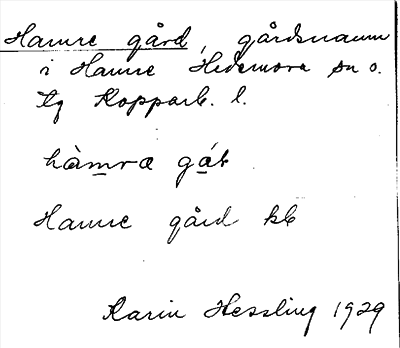 Hamre gård, gårdsnamn
i Hamre Hedemora sn o.
tg Kopparb. l.
hàmræ gát
Hamre gård kb
Karin Hessling 1929